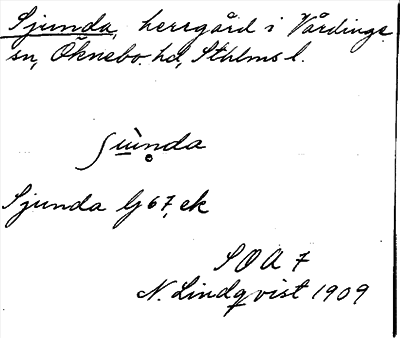 Sjunda, herrgård i Vårdinge
sn, Öknebo hd, Sthlms l.
ʃùnda
Sjunda lj 67, ek
SOA 7
N. Lindqvist 1909